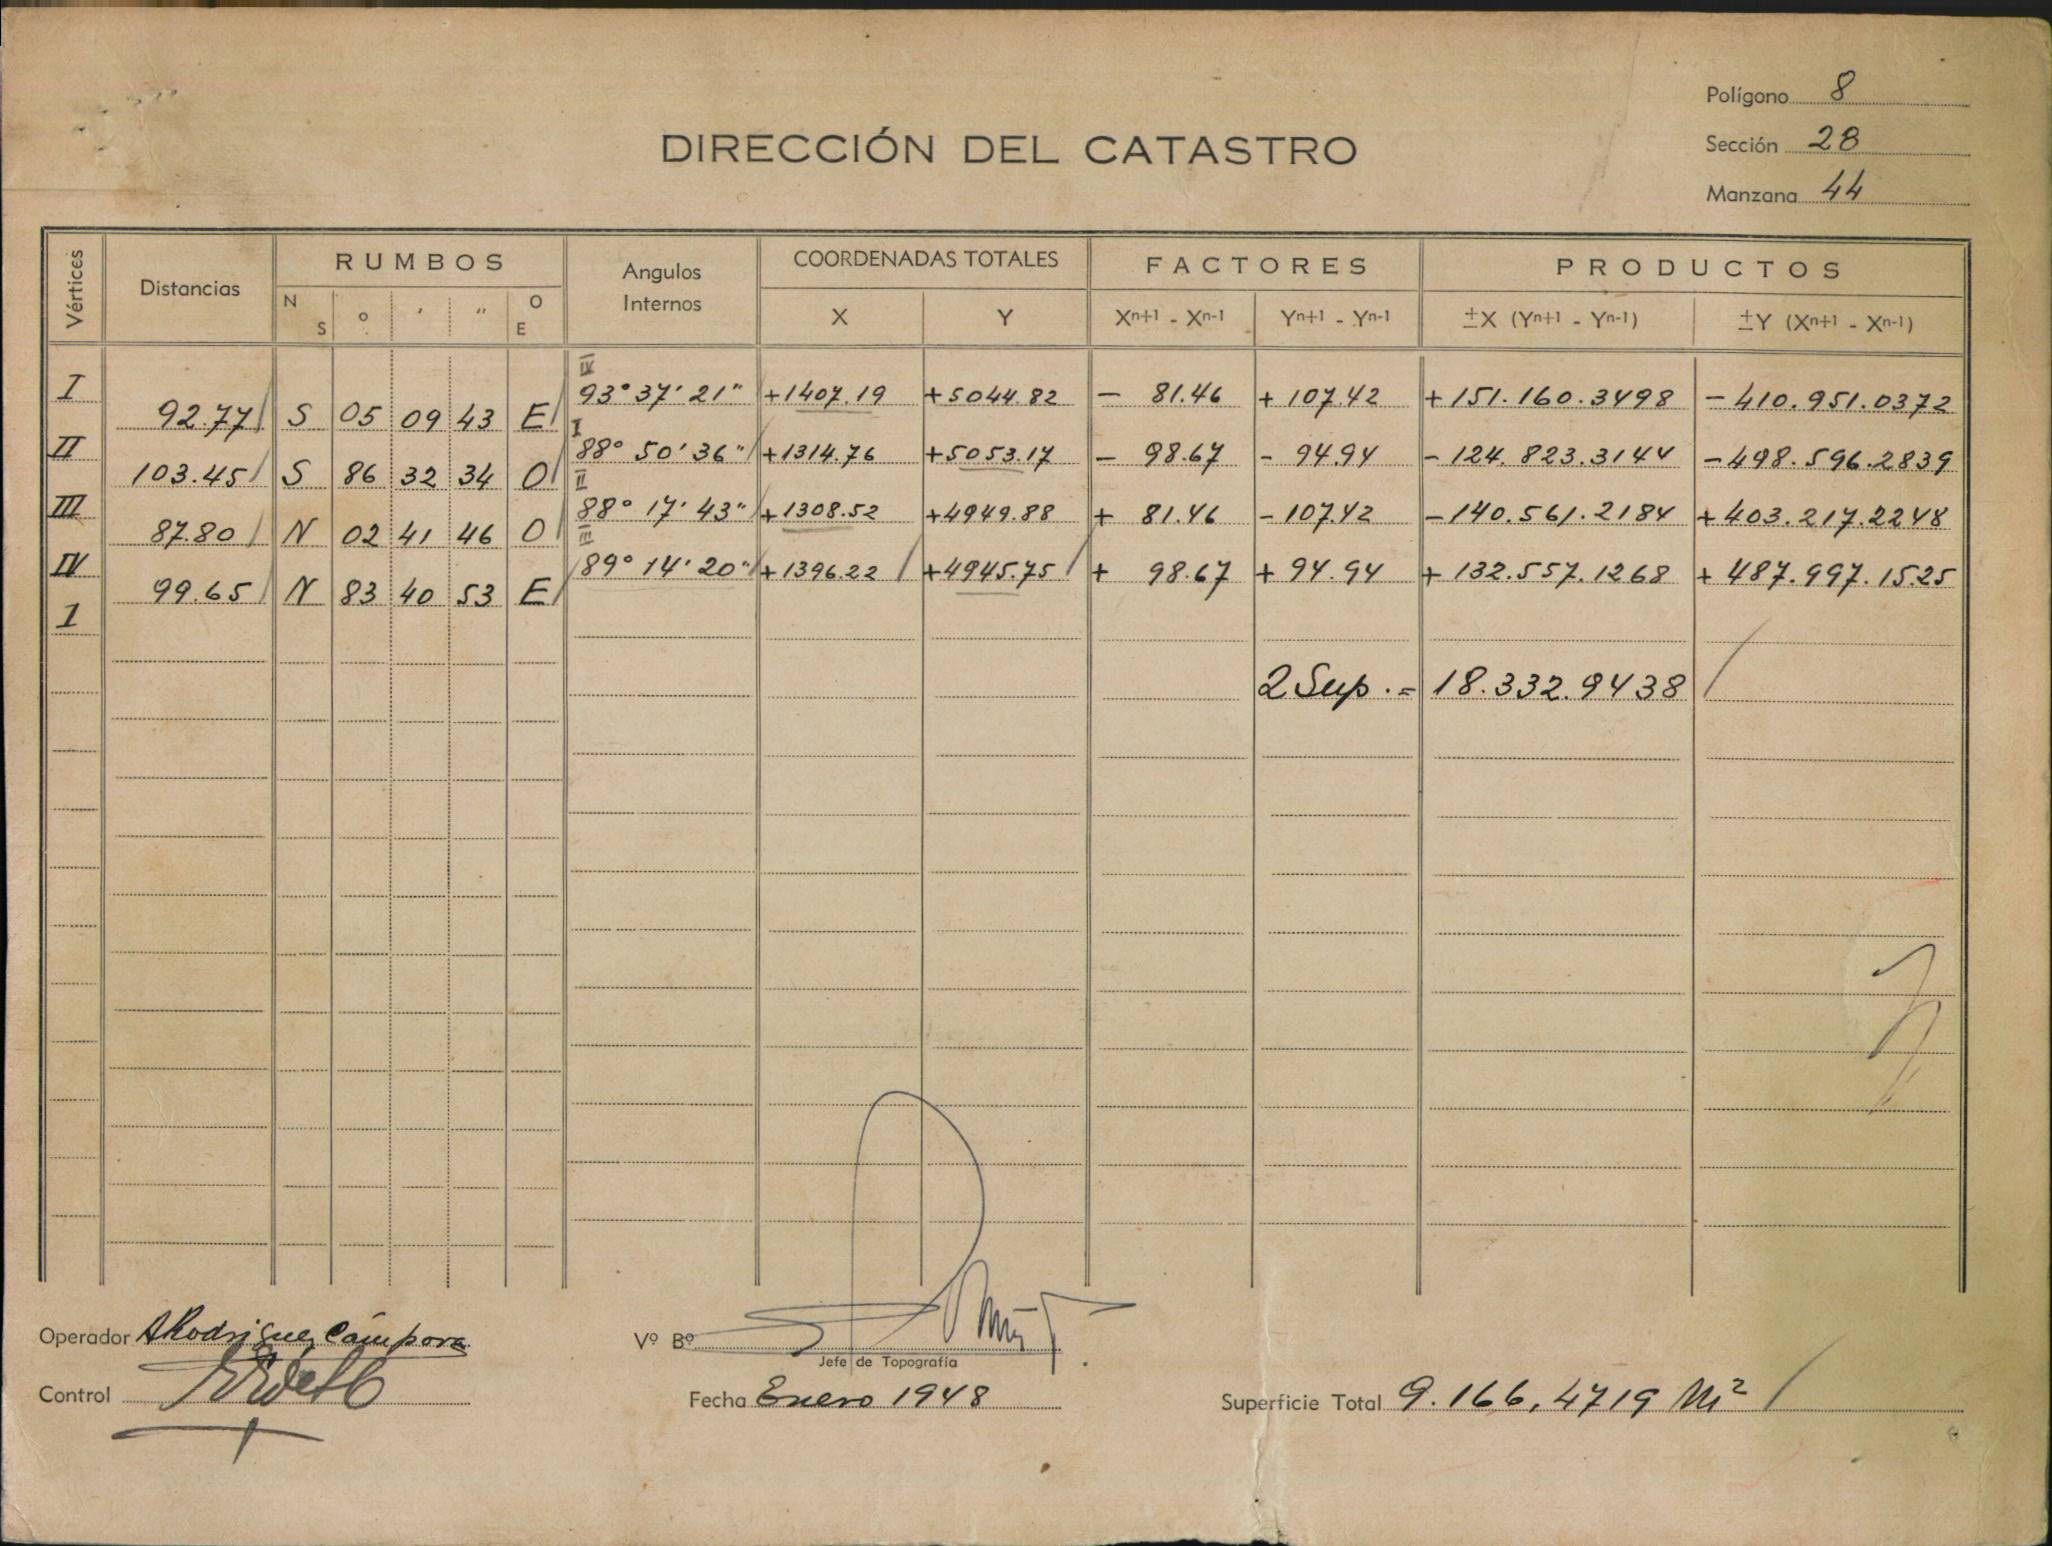 Polígono 8
DIRECCIÓN DEL CATASTRO
Sección 28
Manzana 44
Vértices Distancias RUMBOS Angulos Internos COORDENADAS TOTALES FACTORES PRODUCTOS
N S ° ' " O E X Y Xn+1 - Xn-1 Yn+1 - Yn-1 ±X (Yn+1 - Yn-1) ±Y (Xn+1 - Xn-1)
IV
I 93° 37' 21" +1407.19 +5044.82 - 81.46 + 107.42 +151.160.3498 -410.951.0372
92.77 S 05 09 43 E
I
II 88° 50' 36" +1314.76 +5053.17 - 98.67 - 94.94 -124.823.3144 -498.596.2839
103.45 S 86 32 34 O
II
III 88° 17' 43" +1308.52 +4949.88 + 81.46 -107.42 -140.561.2184 +403.217.2248
87.80 N 02 41 46 O
III
IV 89° 14' 20" +1396.22 +4945.75 + 98.67 + 94.94 + 132.557.1268 + 487.997.1525
99.65 N 83 40 53 E
I
2 Sup. = 18.332.9438
Operador ARodriguez Cámpora
Vº Bº
Jefe de Topografía
Control
Fecha Enero 1948
Superficie Total 9.166,4719 M²